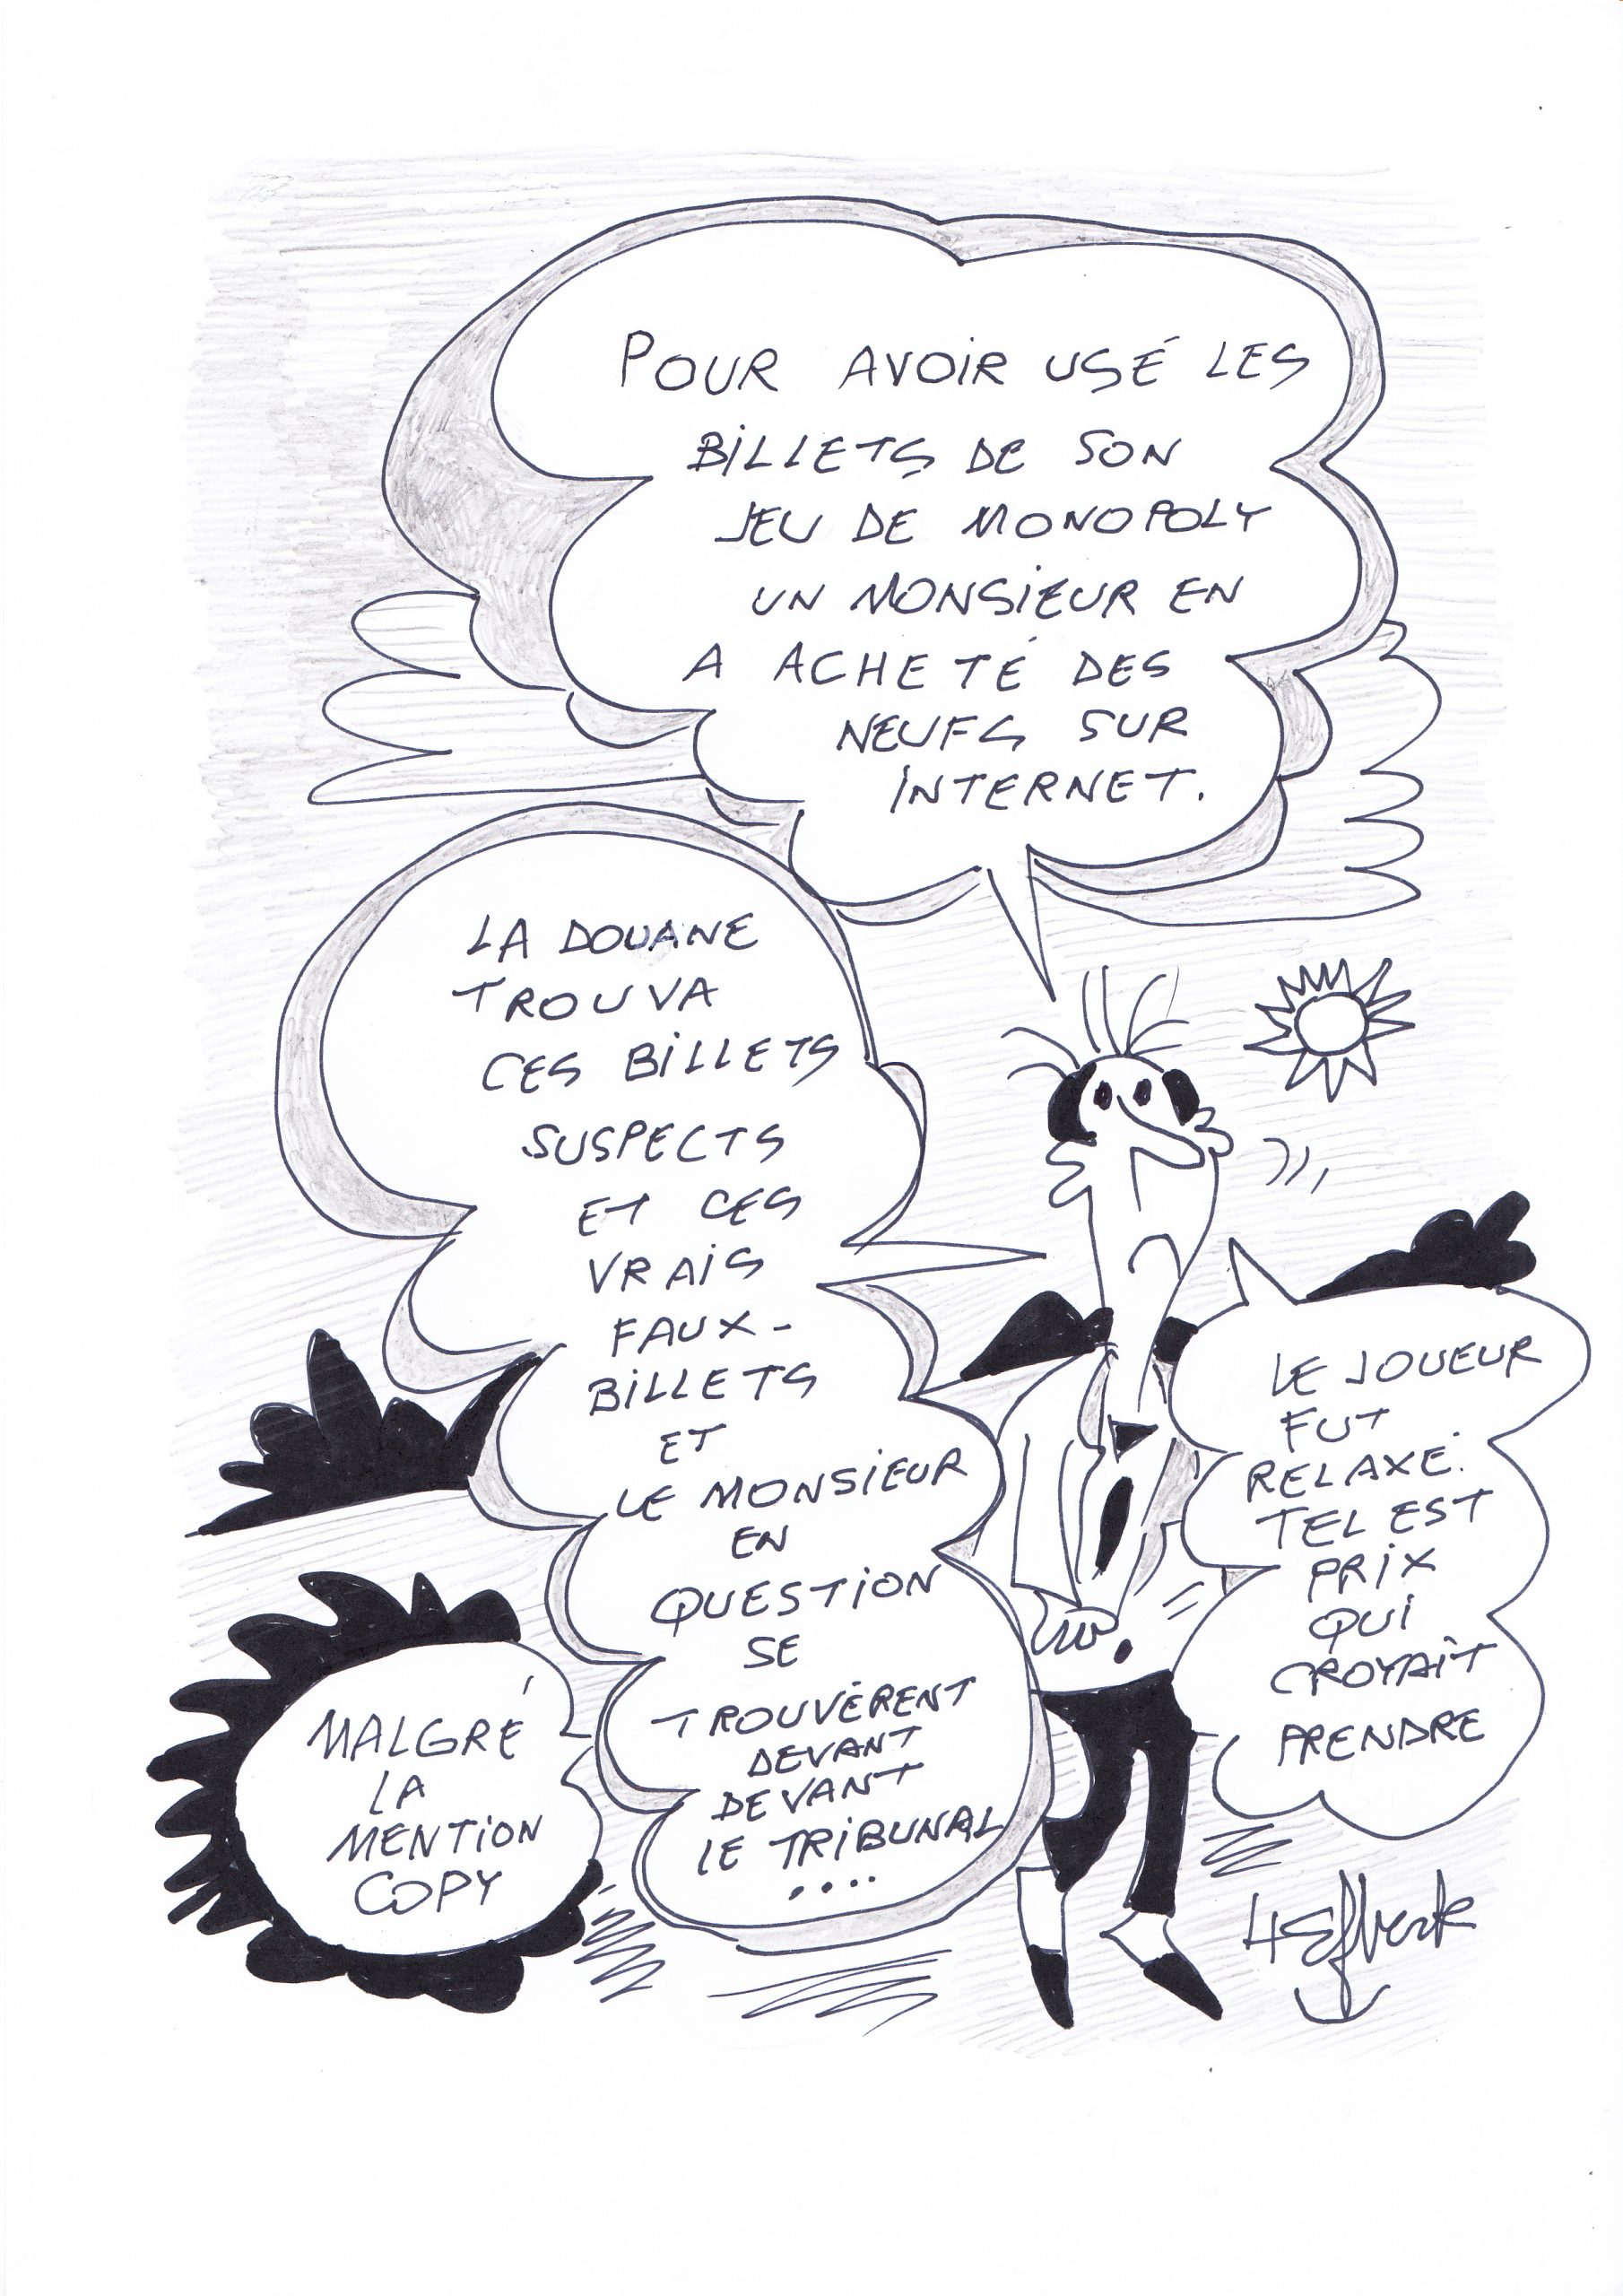 POUR AVOIR USÉ LES
BILLETS DE SON
JEU DE MONOPOLY
UN MONSIEUR EN
A ACHETÉ DES
NEUFS SUR
INTERNET.
LA DOUANE
TROUVA
CES BILLETS
SUSPECTS
ET CES
VRAIS
FAUX-
BILLETS
ET
LE MONSIEUR
EN
QUESTION
SE
TROUVÈRENT
DEVANT
DEVANT
LE TRIBUNAL
....
MALGRÉ
LA
MENTION
COPY
LE JOUEUR
FUT
RELAXÉ.
TEL EST
PRIX
QUI
CROYAIT
PRENDRE